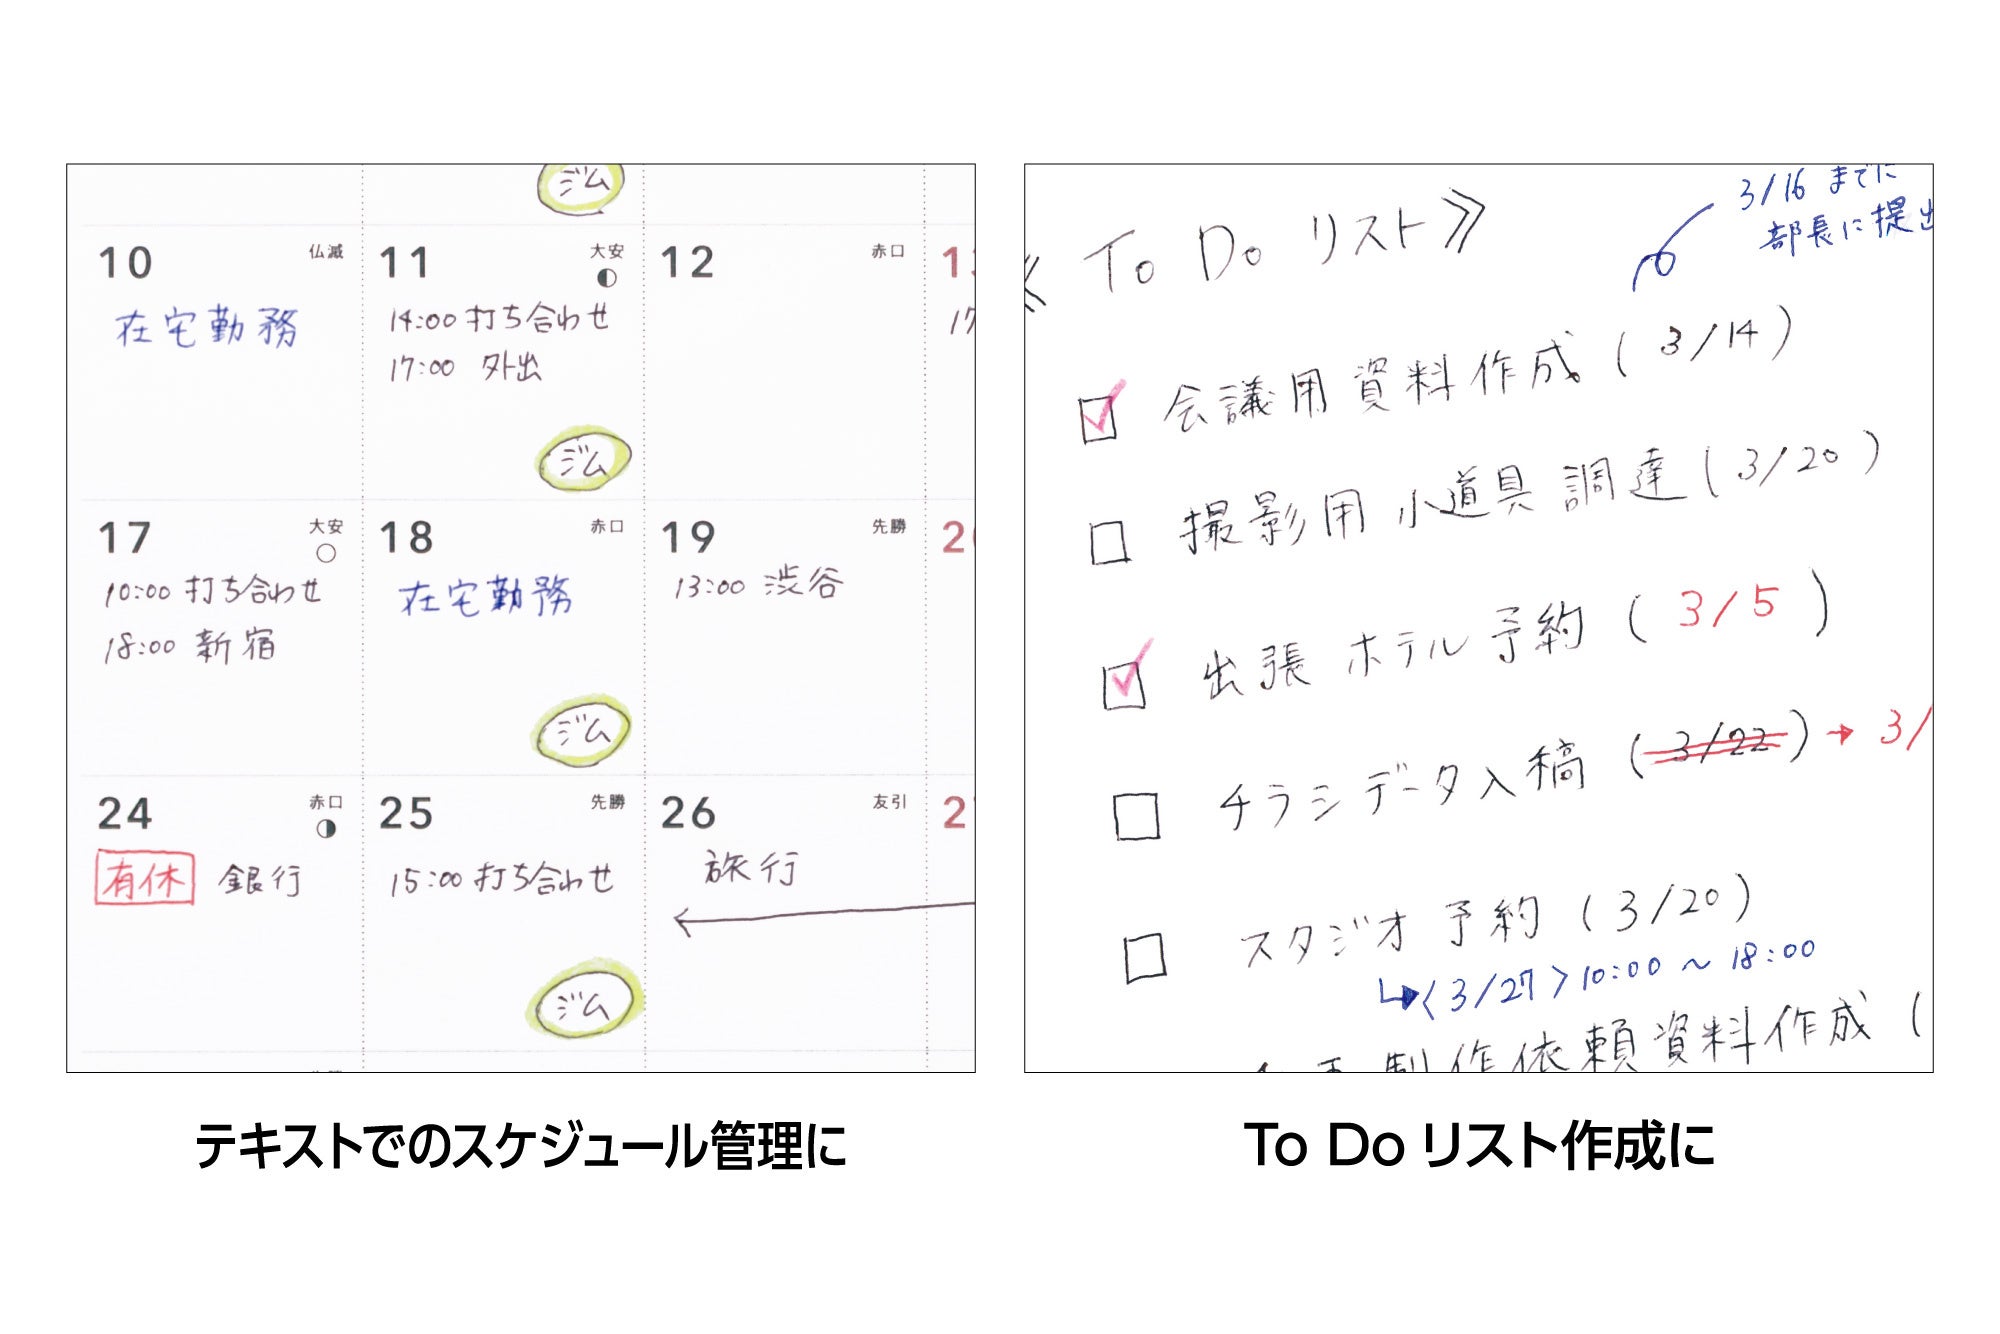 ジム
10 仏滅
在宅勤務
11 大安
14:00 打ち合わせ
17:00 外出
ジム
12 赤口
17 大安
10:00 打ち合わせ
18:00 新宿
18 赤口
在宅勤務
ジム
19 先勝
13:00 渋谷
24 赤口
有休 銀行
25 先勝
15:00 打ち合わせ
ジム
26 友引
旅行
テキストでのスケジュール管理に
3/16 までに
部長に提出
To Do リスト》
会議用資料作成 (3/14)
撮影用小道具調達 (3/20)
出張ホテル予約 (3/5)
チラシデータ入稿 (3/22) → 3/
スタジオ予約 (3/20)
〈3/27〉10:00 〜 18:00
制作依頼資料作成 (
To Do リスト作成に